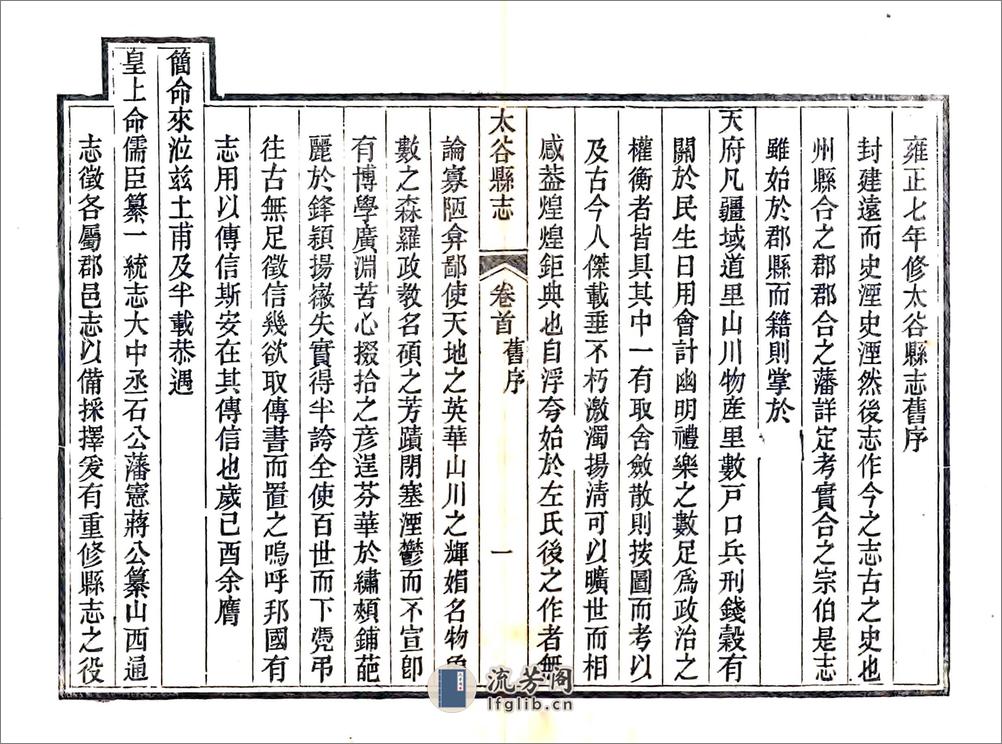 雍正七年修太谷縣志舊序
封建遠而史湮史湮然後志作今之志古之史也
州縣合之郡郡合之藩詳定考實合之宗伯是志
雖始於郡縣而籍則掌於
天府凡疆域道里山川物產里數戸口兵刑錢穀有
關於民生日用會計幽明禮樂之數足爲政治之
權衡者皆具其中一有取舍斂散則按圖而考以
及古今人傑載垂不朽激濁揚淸可以曠世而相
感葢煌煌鉅典也自浮夸始於左氏後之作者無
太谷縣志
卷首 舊序
一
論寡陋弇鄙使天地之英華山川之輝媚名物象
數之森羅政教名碩之芳蹟閉塞湮鬱而不宣卽
有博學廣淵苦心掇拾之彦逞芬華於繡頰鋪葩
麗於鋒穎揚嶶失實得半誇全使百世而下凴弔
往古無足徵信幾欲取傳書而置之嗚呼邦國有
志用以傳信斯安在其傳信也歲己酉余膺
簡命來涖兹土甫及半載恭遇
皇上命儒臣纂一統志大中丞石公藩憲蔣公纂山西通
志徵各屬郡邑志以備採擇爰有重修縣志之役
流芳閣
lfglib.cn